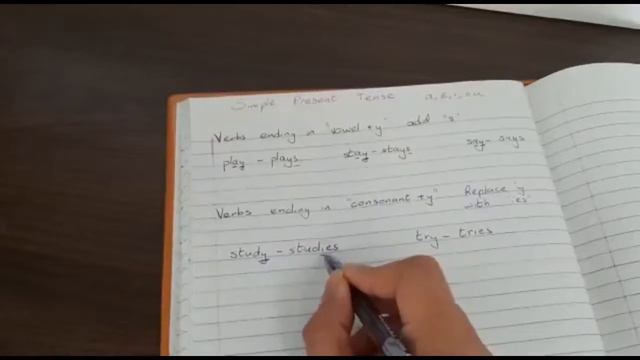 Simple Present Tense a, e, i, o u
Verbs ending in "vowel +y" add "s"
play - plays stay - stays say - says
Verbs ending in "consonant +y" Replace 'y
with 'ies'
study - studies try - tries